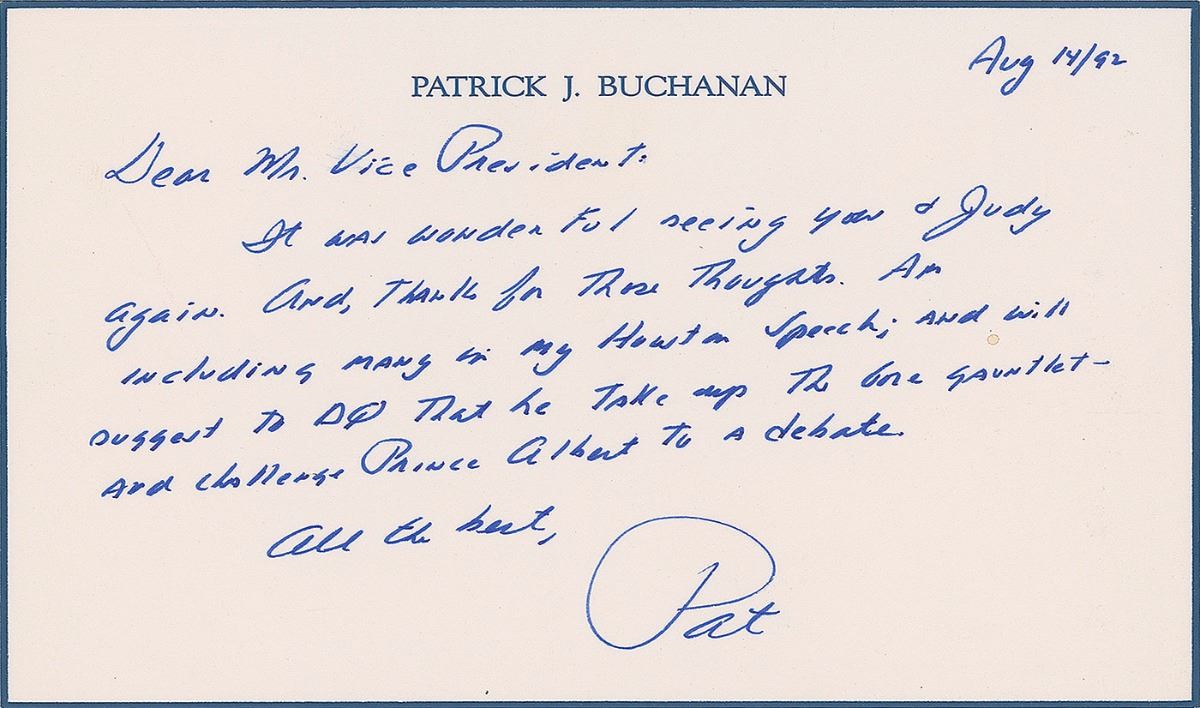 PATRICK J. BUCHANAN
Aug 14/92
Dear Mr. Vice President:
It was wonderful seeing you & Judy
again. And, Thanks for Those Thoughts. Am
including many in my Houston Speech; and will
suggest to DQ That he Take up The Gore gauntlet—
and challenge Prince Albert To a debate.
All the best,
Pat